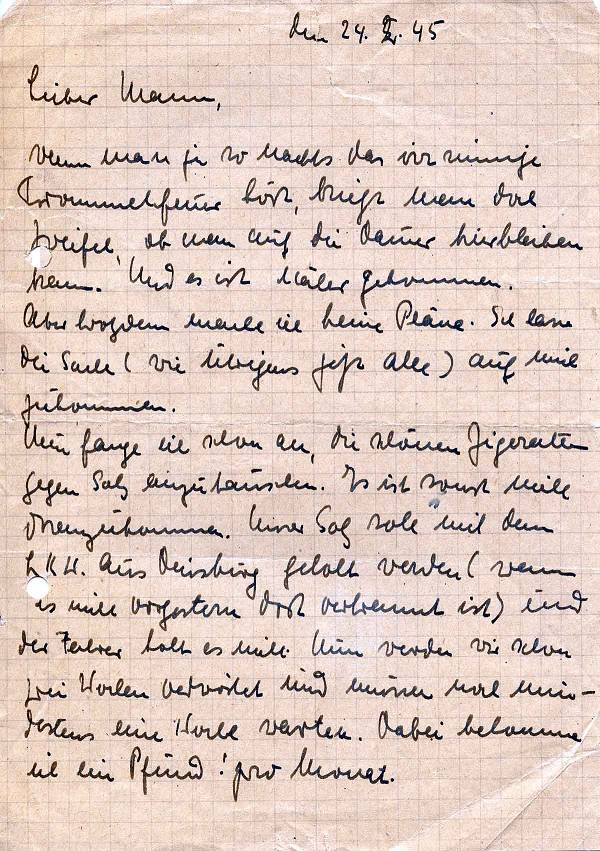 den 24. II. 45
Lieber Mann,
wenn man jr so nachts das wir minnije
Trommelfeuer hört, kriegt man doch
Zweifel, ob man auf die Dauer hierbleiben
kann. Und es ist näher gekommen.
Aber trotzdem mache ich keine Pläne. Ich lasse
die Sache (wie übrigens jetzt alle) auf mich
zukommen.
Nun fange ich schon an, die schönen Zigaretten
gegen Salz einzutauschen. Es ist sonst nicht
dranzukommen. Unser Salz soll mit dem
LKW. aus Duisburg geholt werden (wenn
es nicht vorgestern dort verbrannt ist) und
der Fahrer holt es nicht. Nun werden wir schon
zwei Wochen vertröstet und müssen noch min-
destens eine Woche warten. Dabei bekomme
ich ein Pfund! pro Monat.